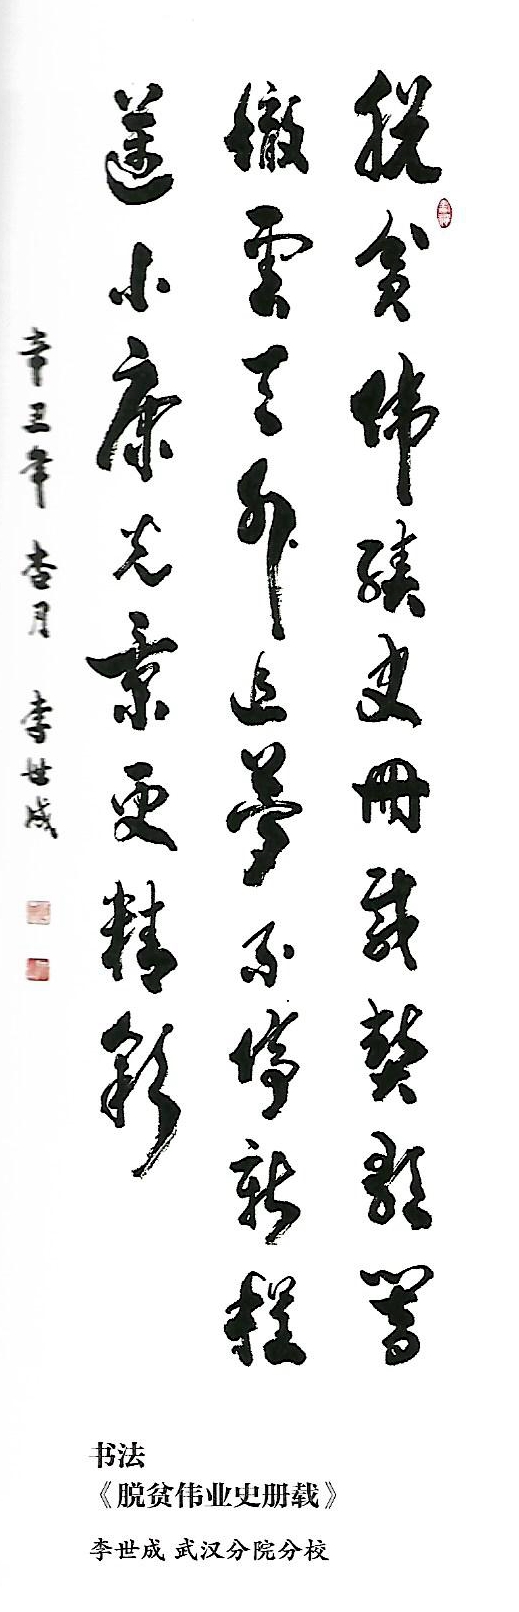 脱贫伟绩史册载赞歌响
徹雲天外追夢不停新程
邁小康光景更精彩
辛丑年杏月 李世成
书法
《脱贫伟业史册载》
李世成 武汉分院分校